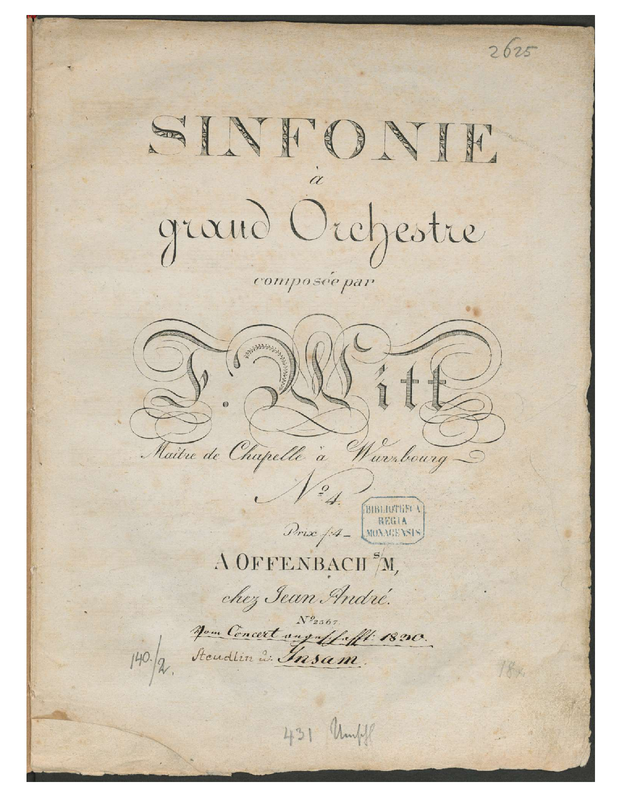 2625
SINFONIE
à
grand Orchestre
composée par
F. Witt
Maitre de Chapelle à Wurzbourg
Nº 4.
BIBLIOTHECA
REGIA
MONACENSIS
Prix f. 4 _
A OFFENBACH s/M,
chez Jean André.
Nº 2567.
Vom Concert angeschafft: 1820.
140/2.
Insam.
431